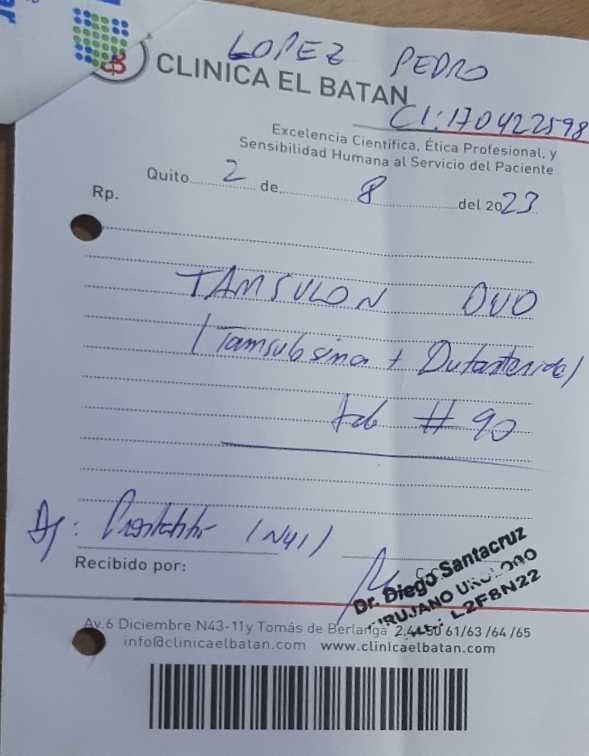 LOPEZ PEDRO
CLINICA EL BATAN
CI: 170422598
Excelencia Científica, Ética Profesional, y
Sensibilidad Humana al Servicio del Paciente
Quito 2 de 8 del 2023
Rp.
TAMSULON DUO
(Tamsulosina + Dutasterida)
tab # 90
Dg: (N41)
Recibido por:
Dr. Diego Santacruz
CIRUJANO UROLOGO
L2F8N22
Av.6 Diciembre N43-11y Tomás de Berlanga 61/63 /64 /65
info@clinicaelbatan.com www.clinicaelbatan.com